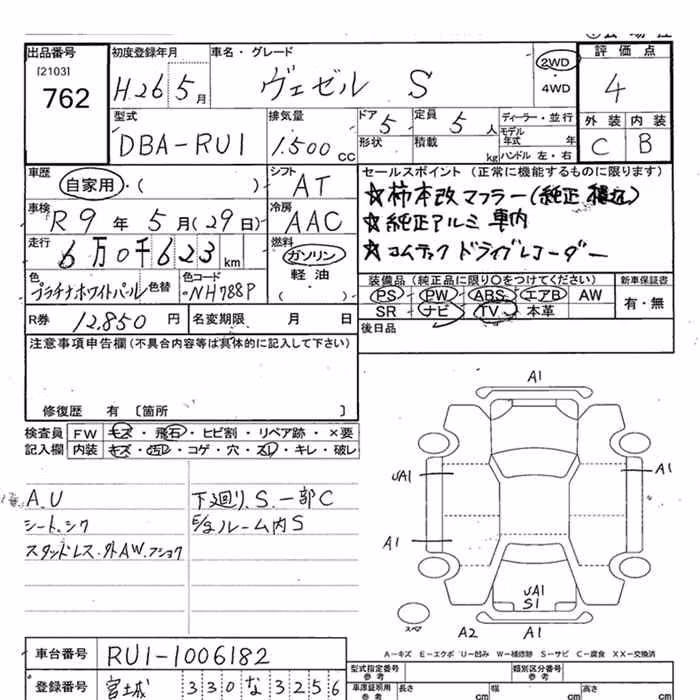 出品番号
[2103]
762
初度登録年月
H26 5月
車名・グレード
ヴェゼル S
2WD
・
4WD
評価点
4
外装 内装
C B
型式
DBA-RU1
排気量
1.500 cc
ドア
5
形状
定員
5人
積載
kg
ディーラー・並行
モデル
年式 年
ハンドル 左・右
車歴
自家用・( )
シフト
AT
車検
R9年 5月(29日)
冷房
AAC
走行
6万0千623 km
燃料
ガソリン
軽油
( )
色
プラチナホワイトパール
色替
色コード
NH788P
セールスポイント (正常に機能するものに限ります)
☆柿本改マフラー(純正 積込)
☆純正アルミ 車内
☆コムテック ドライブレコーダー
装備品 (純正品に限り○をつけてください)
PS PW ABS エアB AW
SR ナビ TV 本革
新車保証書
有・無
後日品
R券 12,850 円
名変期限 月 日
注意事項申告欄 (不具合内容等は具体的に記入して下さい)
修復歴 有 〔箇所 〕
検査員
記入欄
FW キズ・飛石・ヒビ割・リペア跡・×要
内装 キズ・汚レ・コゲ・穴・スレ・キレ・破レ
A.U
シート、シワ
スタッドレス.外AW.フショク
下廻り.S.一部C
E/gルーム内S
A1
UA1
A1
A1
UA1
S1
スペア
A2 A1
A-キズ E-エクボ U-凹み W-補修跡 S-サビ C-腐食 XX-交換済
車台番号
RU1-1006182
登録番号
宮城 330 な 3256
型式指定番号
参考
類別区分番号
参考
車庫証明用
参考
長さ cm
幅 cm
高さ cm